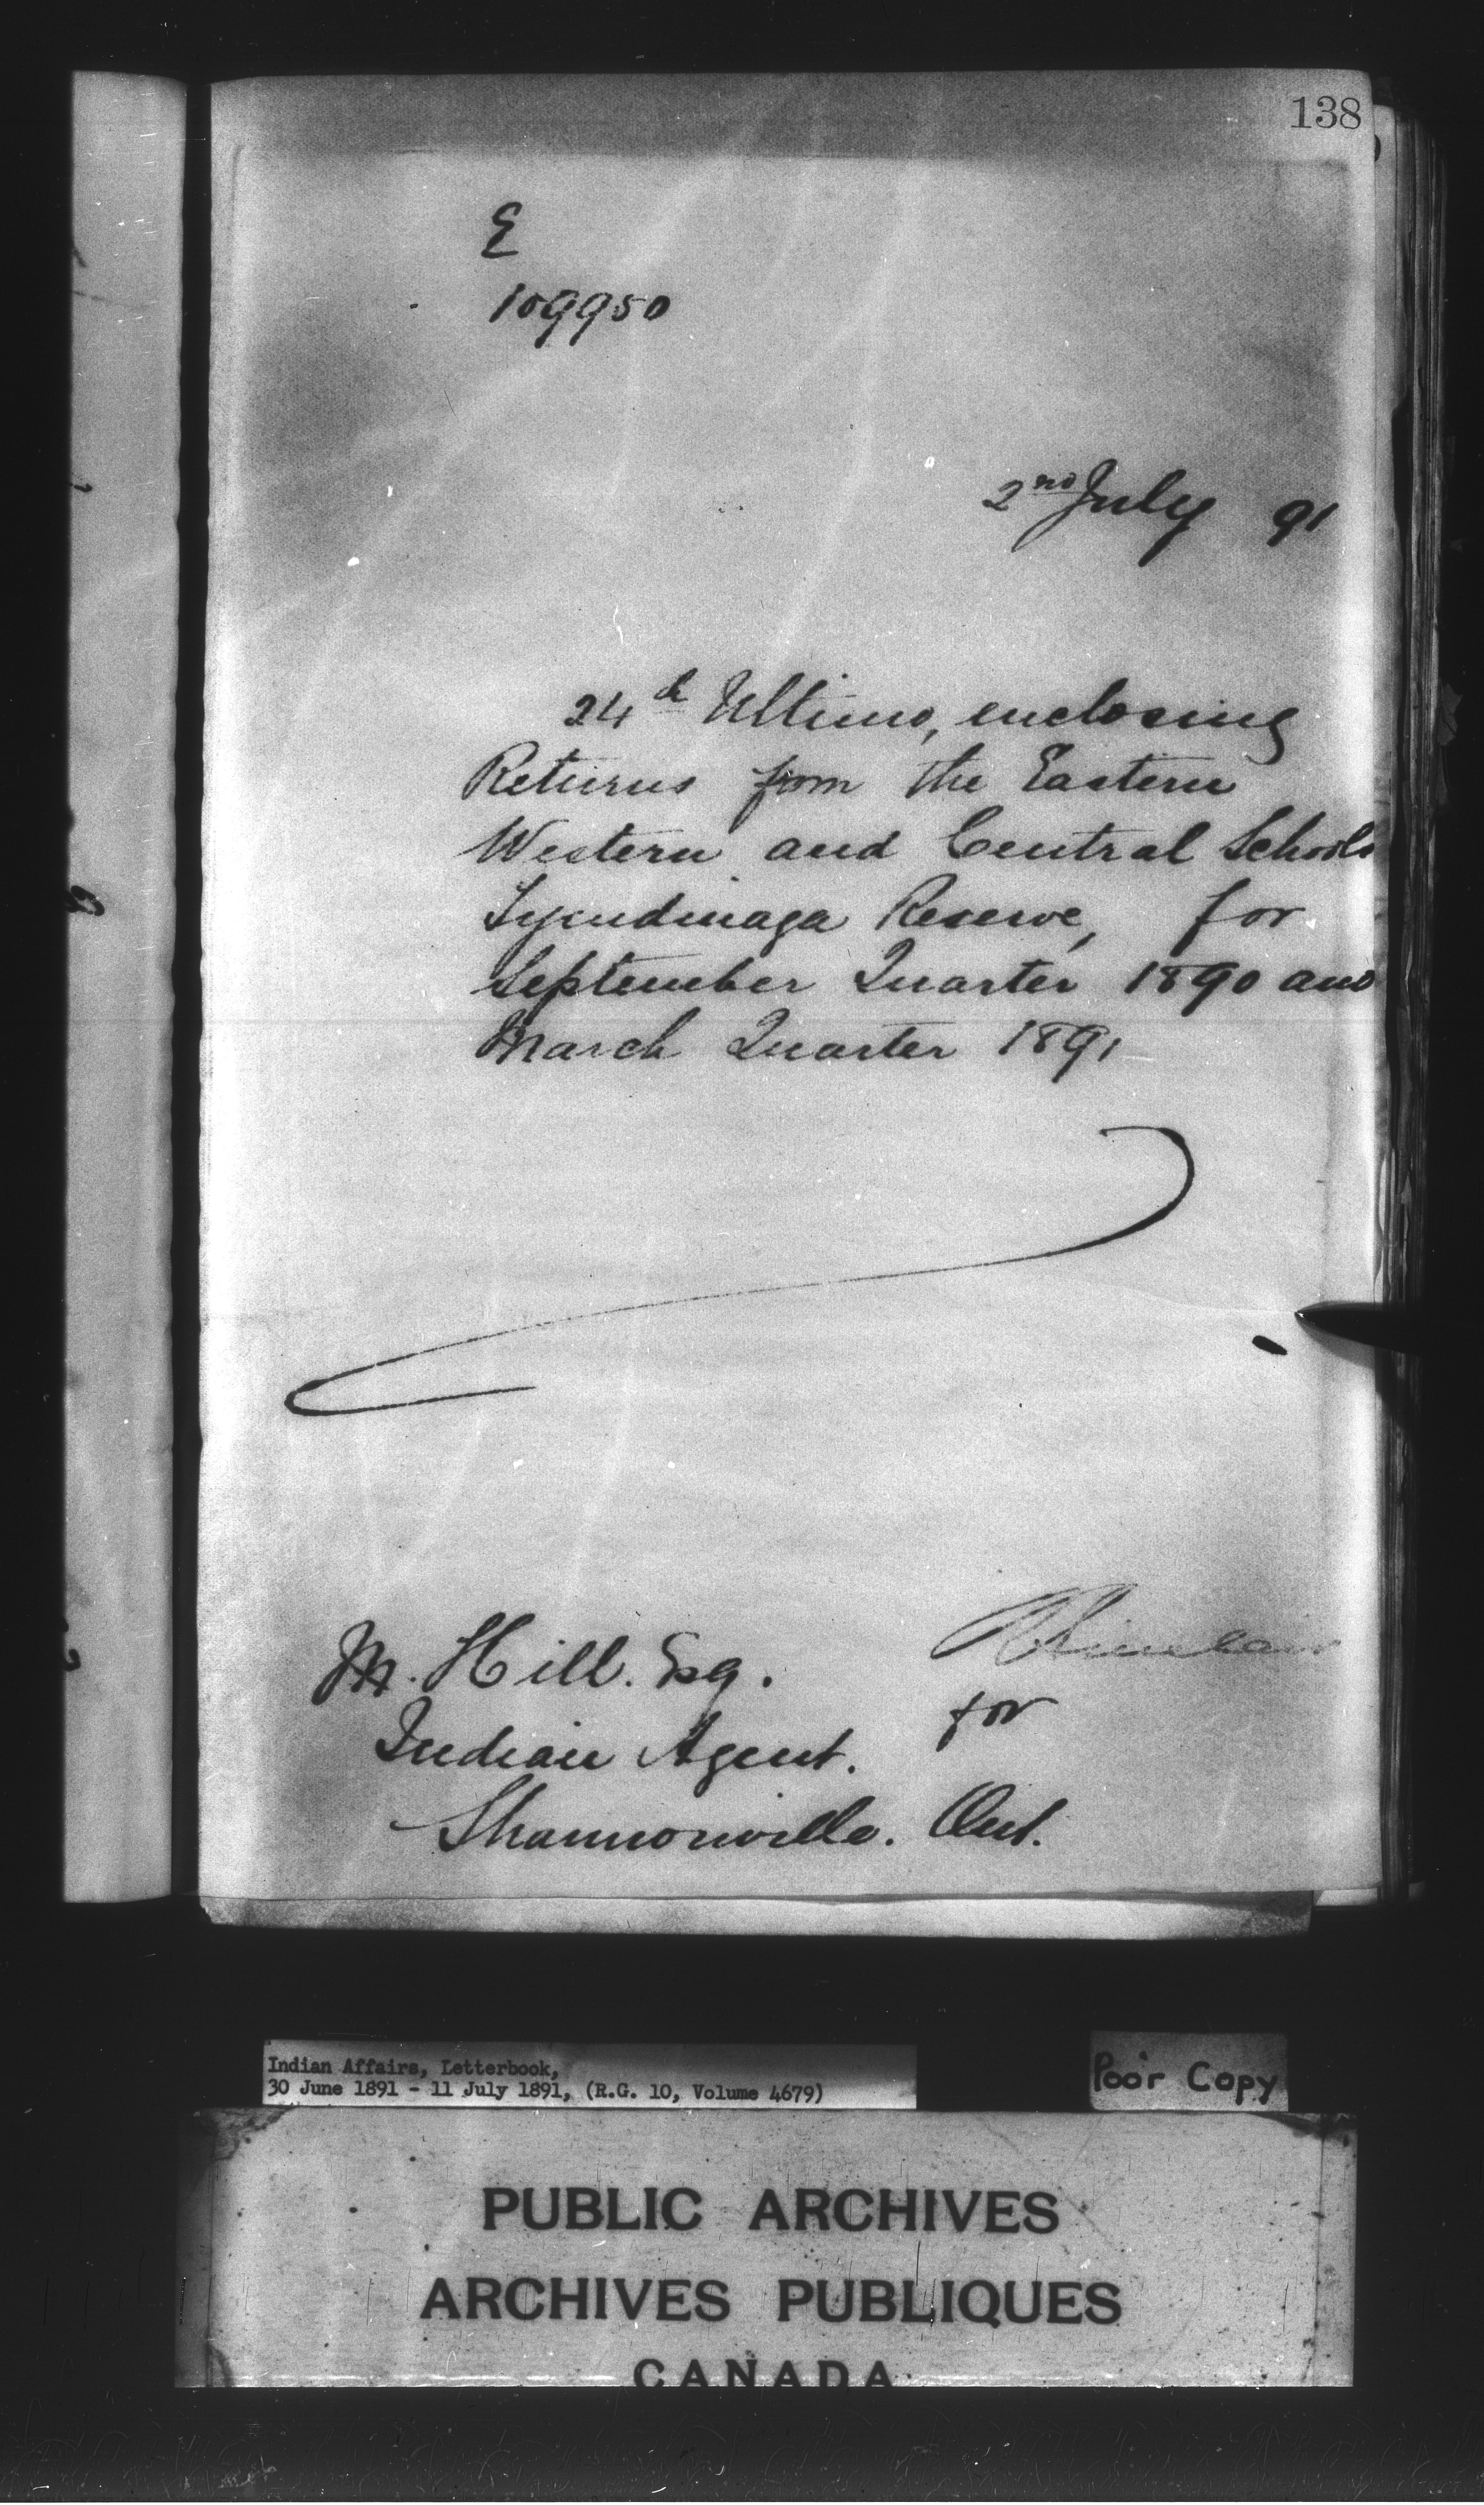 138
E
109950
2nd July 91
24th Ultimo, enclosing
Returns from the Eastern
Western and Central Schools
Tyendinaga Reserve, for
September Quarter 1890 and
March Quarter 1891
M. Hill. Esq.
for
Indian Agent.
Shannonville. Ont.
Indian Affairs, Letterbook,
30 June 1891 - 11 July 1891, (R.G. 10, Volume 4679)
Poor Copy
PUBLIC ARCHIVES
ARCHIVES PUBLIQUES
CANADA